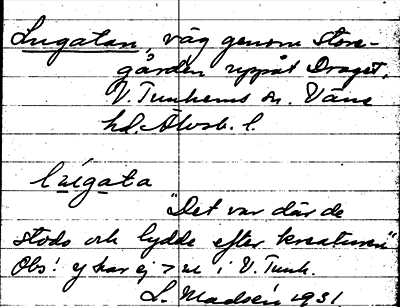 Lugatan, väg genom Store-
gården uppåt Draget,
V. Tunhems sn. Väne
hd. Älvsb. l.
lúgata
"Det var där de
stodo och lydde efter kreaturen"
Obs! y har ej > u i V. Tunh.
L. Madsén 1931